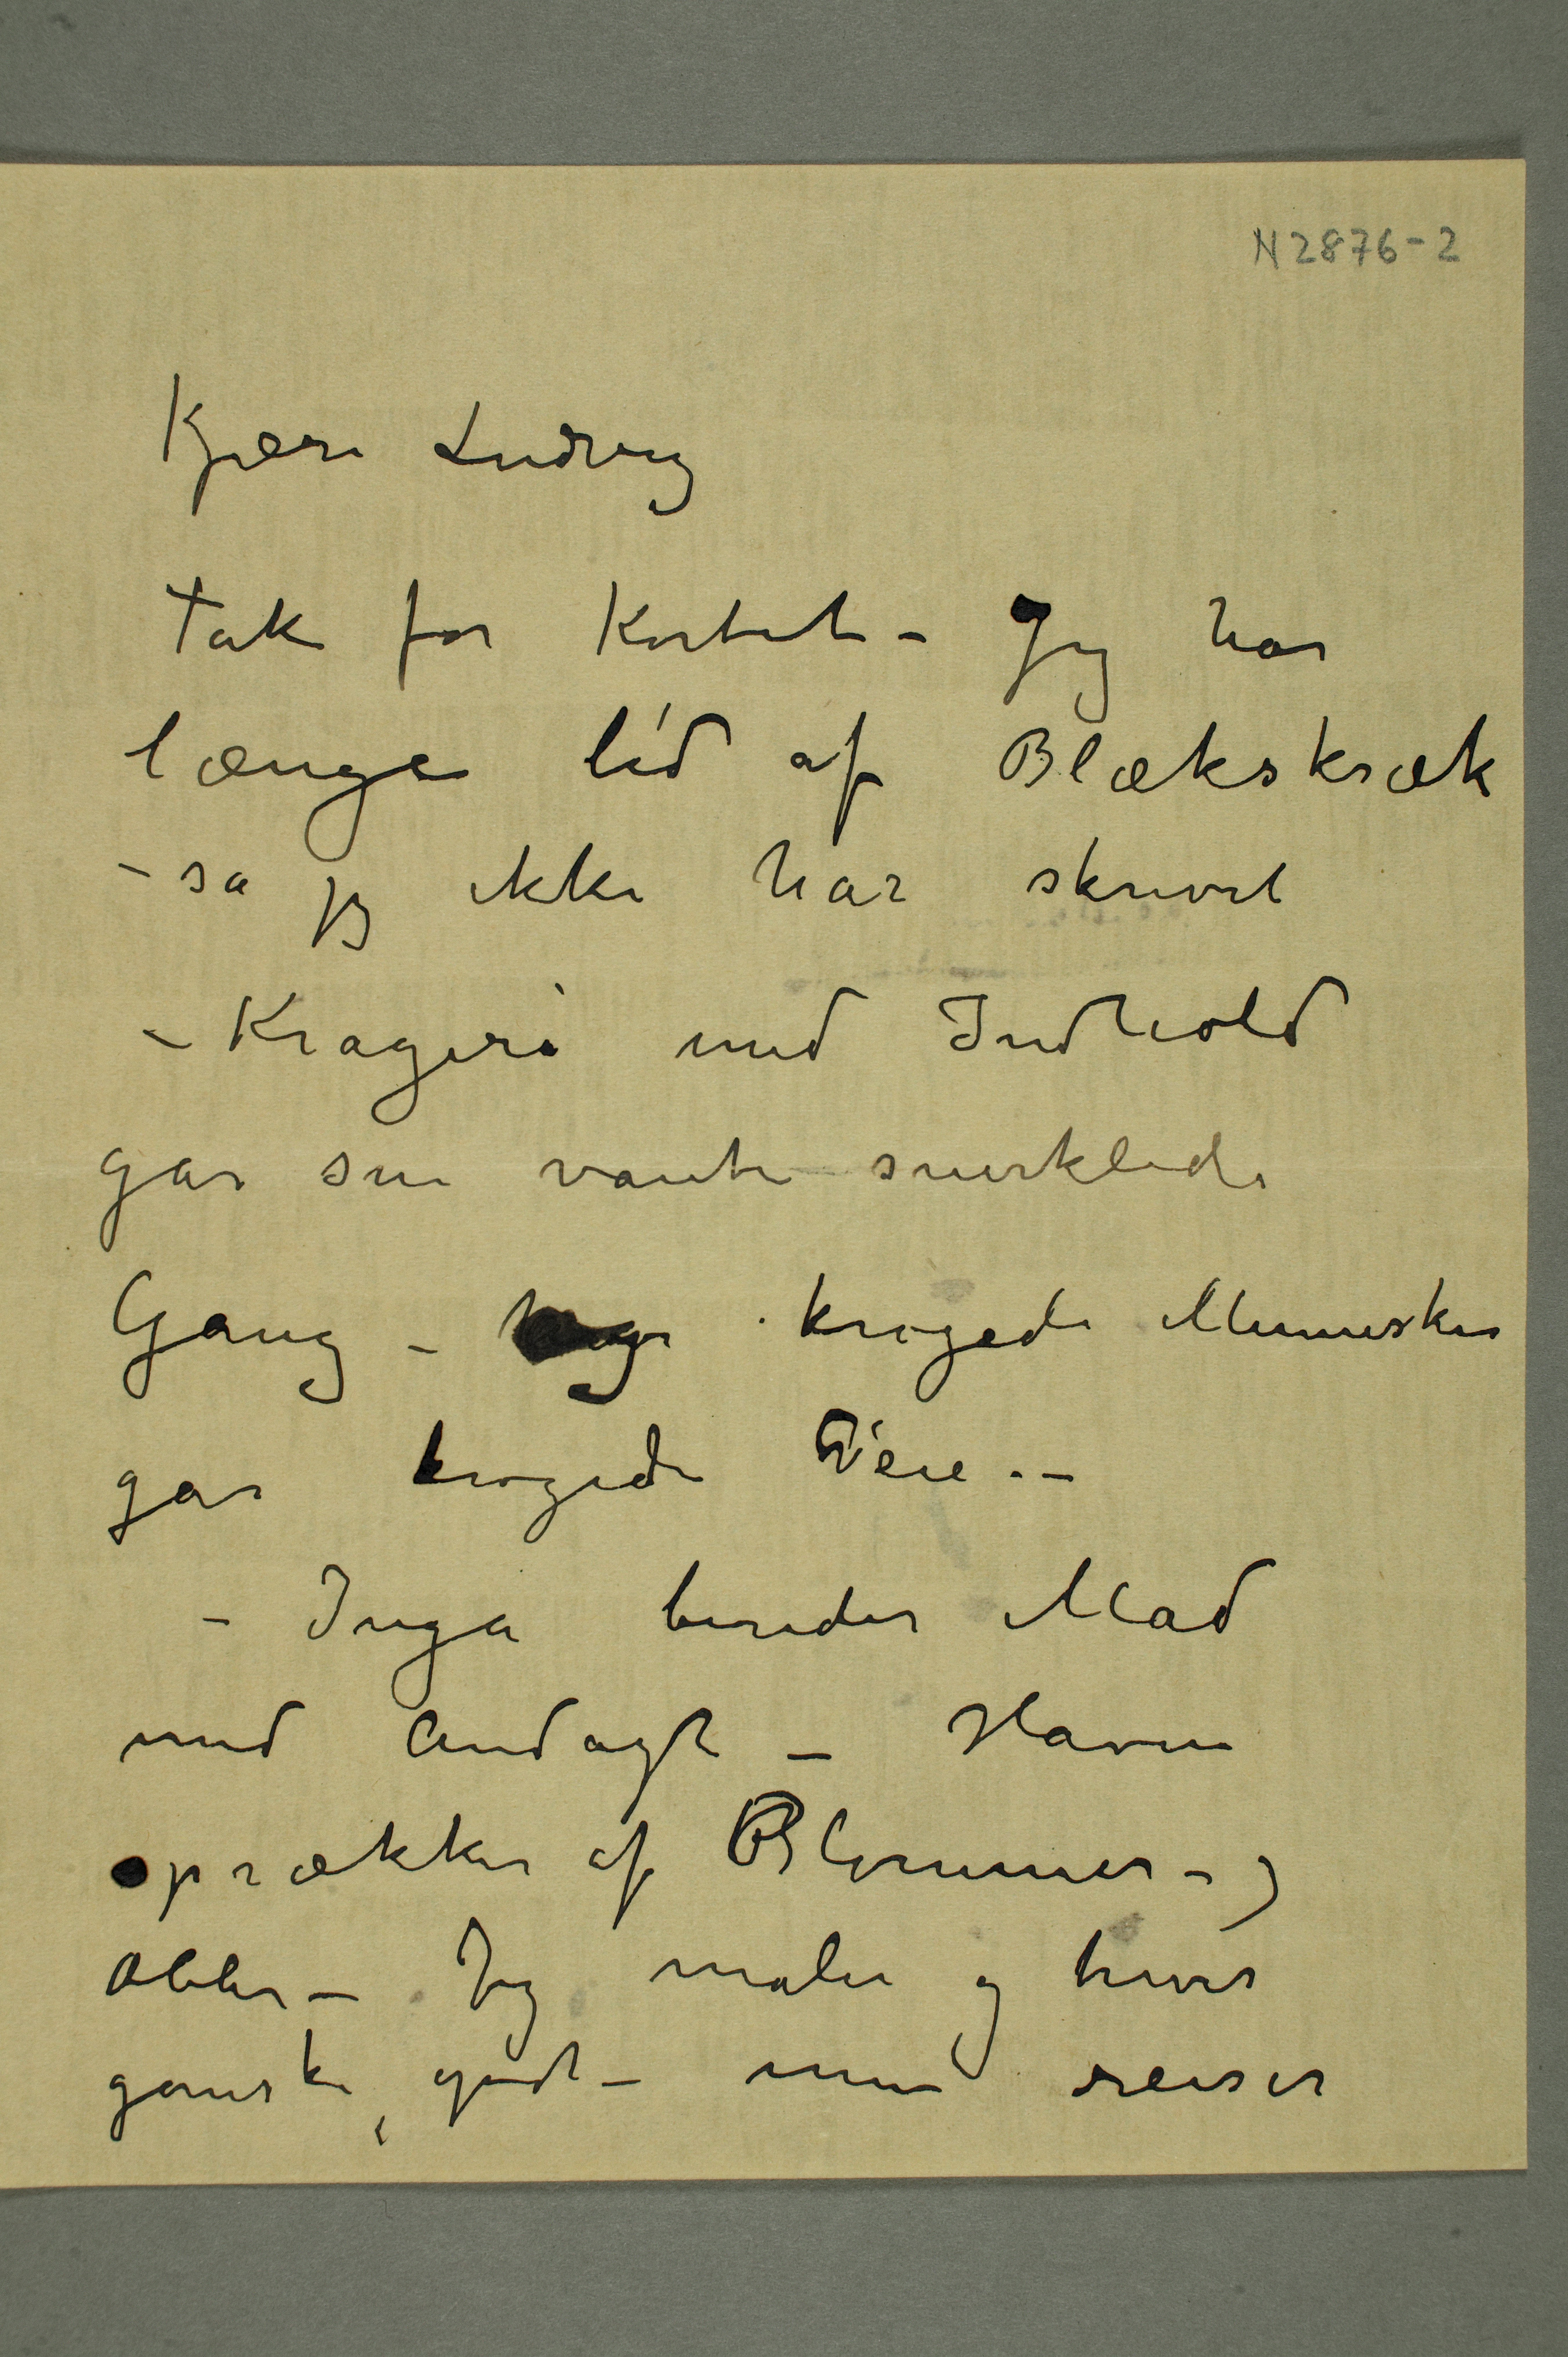 N 2876-2
Kjære Ludvig
Tak for Kortet – Jeg har
længe lid af Blækskræk
– så jeg ikke har skrevet
– Kragerø med Indhold
går sin vante snirklede
Gang – krogede Mennesker
går krogede Veie. –
– Inga bereder Mad
med Andagt – Haven
sprækker af Blommer – og
Æbler – Jeg maler og trives
ganske godt – men reiser